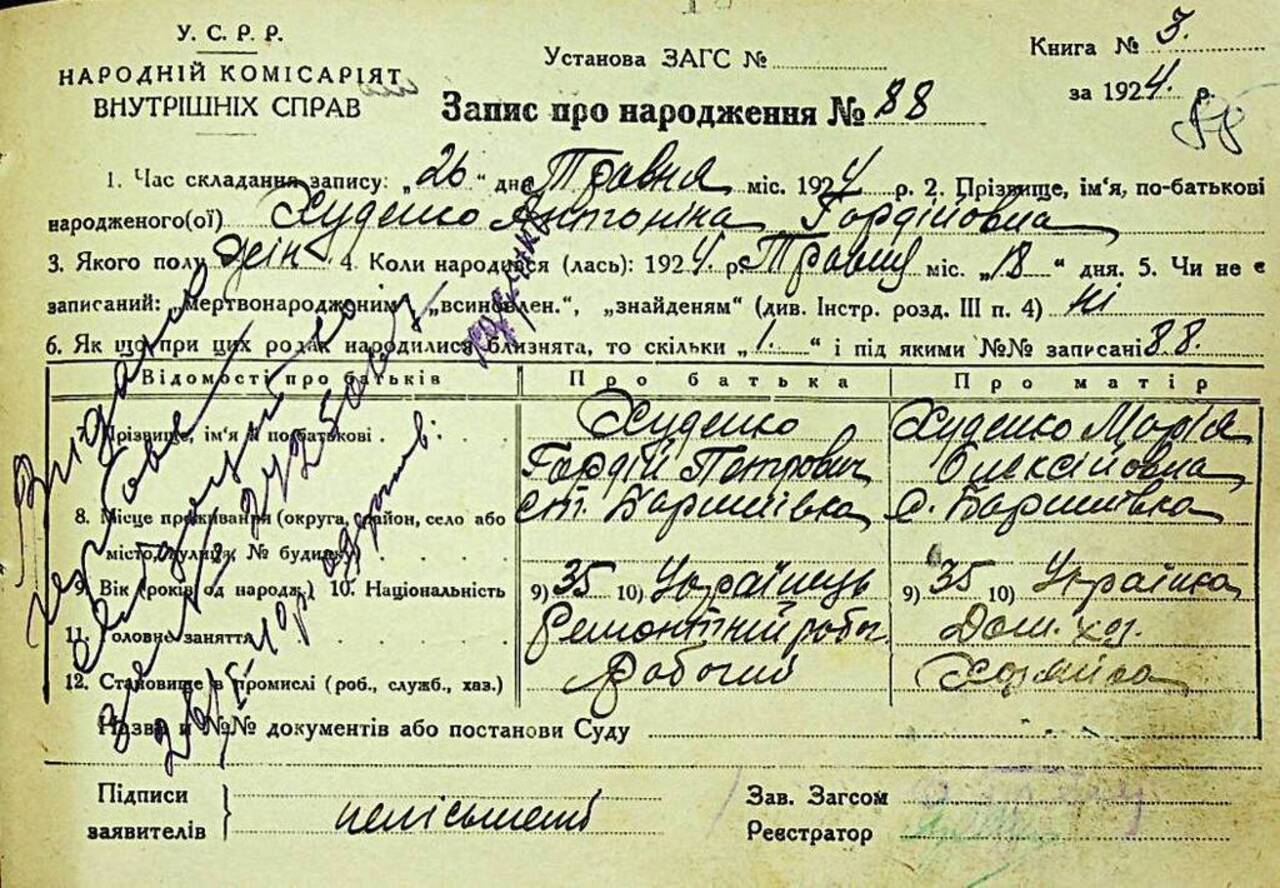 У. С. Р. Р.
НАРОДНІЙ КОМІСАРІЯТ
ВНУТРІШНІХ СПРАВ
Установа ЗАГС №
Книга № 3.
за 1924 р.
Запис про народження № 88
88
1. Час складання запису: „26" дня Травня міс. 1924 р. 2. Прізвище, ім'я, по-батькові
народженого(ої) Худенко Антоніна Гордійовна
3. Якого полу жін. 4. Коли народився (лась): 1924 р. Травня міс. „18" дня. 5. Чи не є
записаний: „мертвонародженим", „всиновлен.", „знайденям" (див. Інстр. розд. III п. 4) ні
6. Як що при цих родах народилися близнята, то скільки „1." і під якими №№ записані 88.
Відомості про батьків Про батька Про матір
7. Прізвище, ім'я й по-батькові Худенко Худенко Марія
Гордій Петрович Олексійовна
8. Місце проживання (округа, район, село або ст. Баришівка с. Баришівка
місто, вулиця, № будинку)
9. Вік (років од народж.) 10. Національність 9) 35 10) Українець 9) 35 10) Українка
11. Головне заняття Ремонтний робоч. Дом. хоз.
12. Становище в промислі (роб., служб., хаз.) Рабочий Хозяйка
Назва й №№ документів або постанови Суду
Підписи
заявителів
неписьмені
Зав. Загсом
Реєстратор
Видано